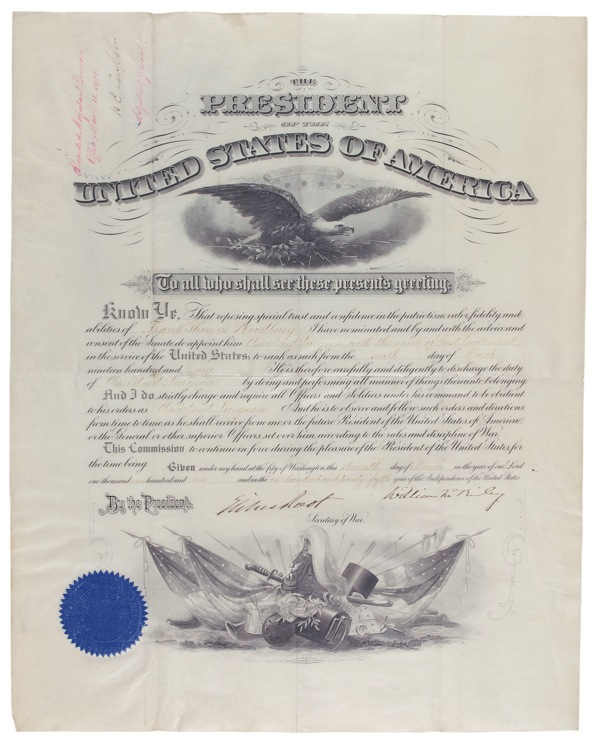 THE
PRESIDENT
OF THE
UNITED STATES OF AMERICA
To all who shall see these presents greeting:
Know Ye, That reposing special trust and confidence in the patriotism, valor, fidelity and
abilities of Frank Thomas Woodbury I have nominated and by and with the advice and
consent of the Senate do appoint him Assistant Surgeon with the rank of First Lieutenant
in the service of the United States: to rank as such from the day of
nineteen hundred and one He is therefore carefully and diligently to discharge the duty
of Assistant Surgeon by doing and performing all manner of things thereunto belonging
And I do strictly charge and require all Officers and Soldiers under his command to be obedient
to his orders as Assistant Surgeon And he is to observe and follow such orders and directions
from time to time as he shall receive from me or the future President of the United States of America
or the General or other superior Officers set over him according to the rules and discipline of War
This Commission to continue in force during the pleasure of the President of the United States for
the time being.
Given under my hand at the City of Washington, this day of in the year of our Lord
one thousand hundred and one and in the one hundred and twenty fifth year of the Independence of the United States
By the President:
Elihu Root
William McKinley
Secretary of War